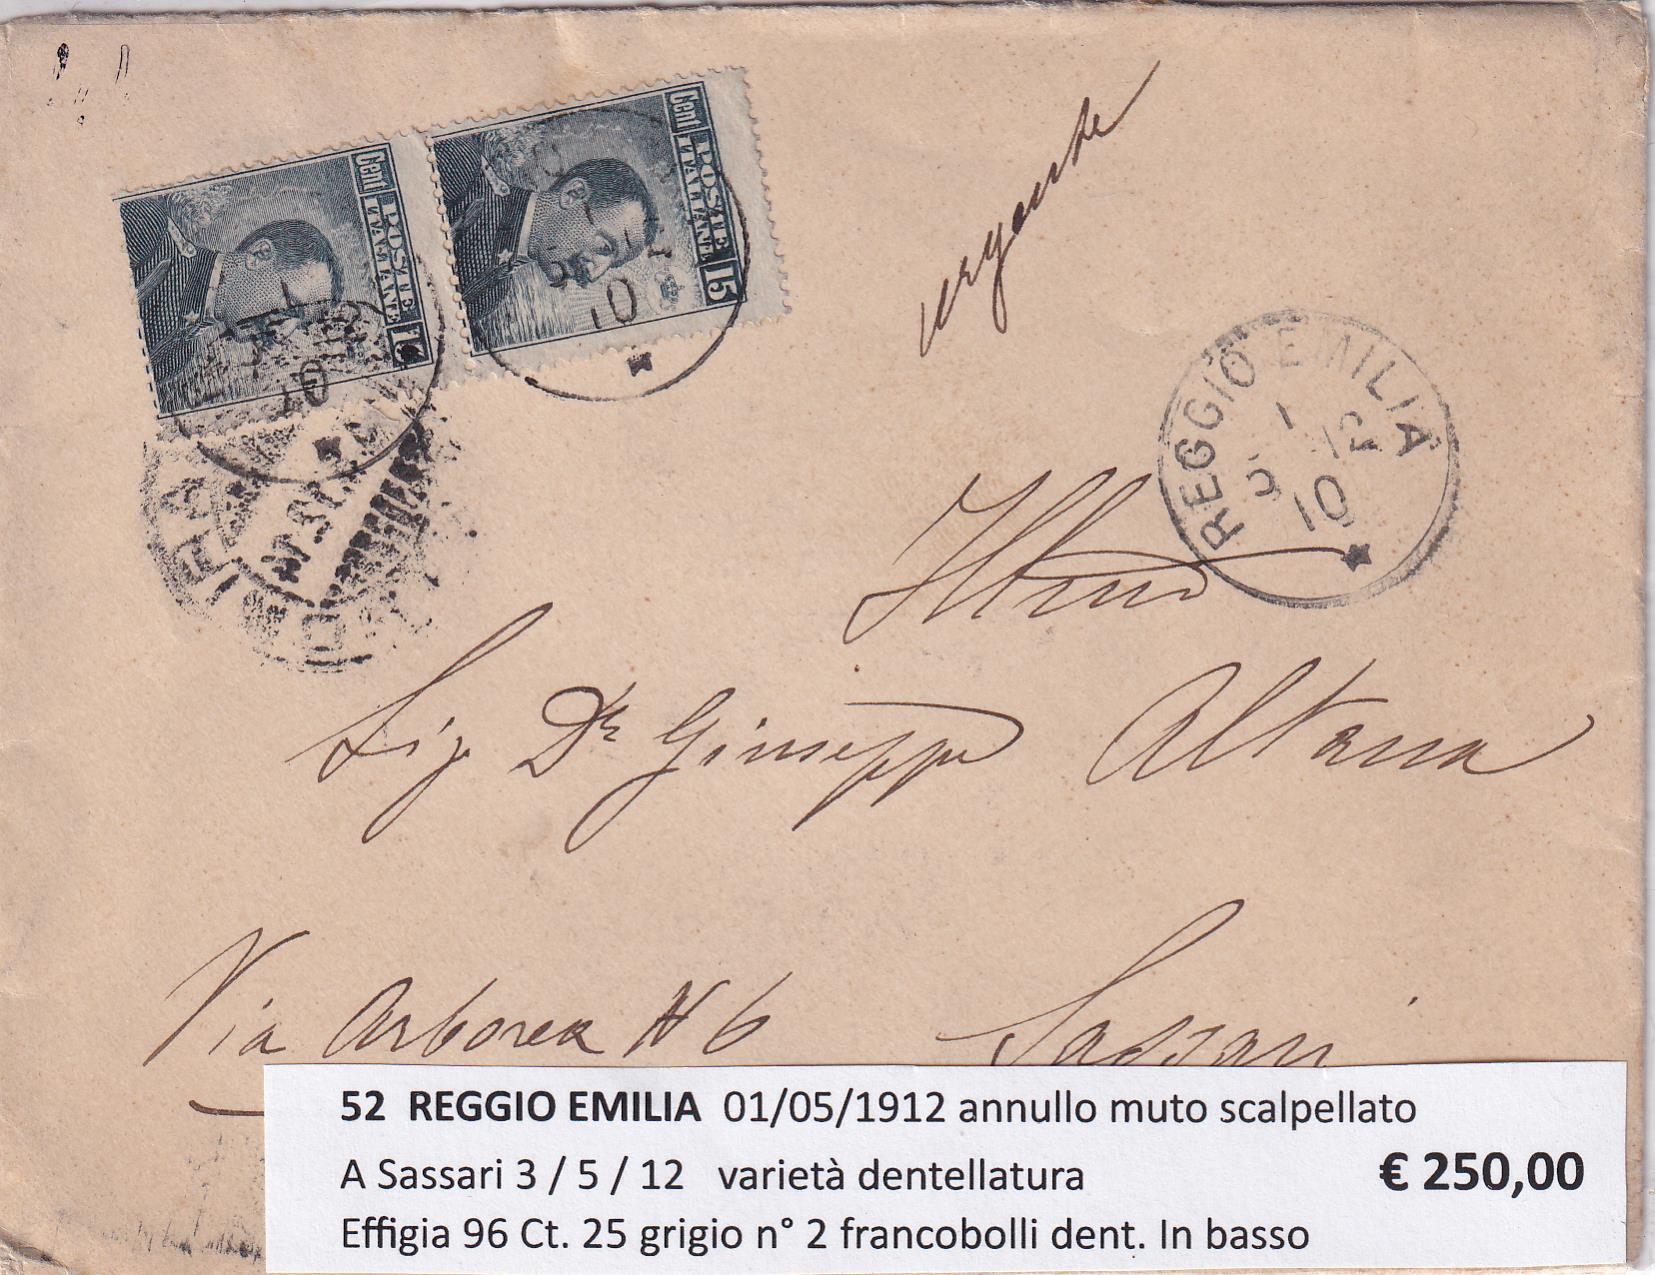 Cent 15
POSTE
ITALIANE
Cent
POSTE
ITALIANE
urgente
REGGIO EMILIA
1
5. 12
10
10
Sig Dr Giuseppe Altana
Via Arborea N 6 Sassari
52 REGGIO EMILIA 01/05/1912 annullo muto scalpellato
A Sassari 3 / 5 / 12 varietà dentellatura € 250,00
Effigia 96 Ct. 25 grigio n° 2 francobolli dent. In basso